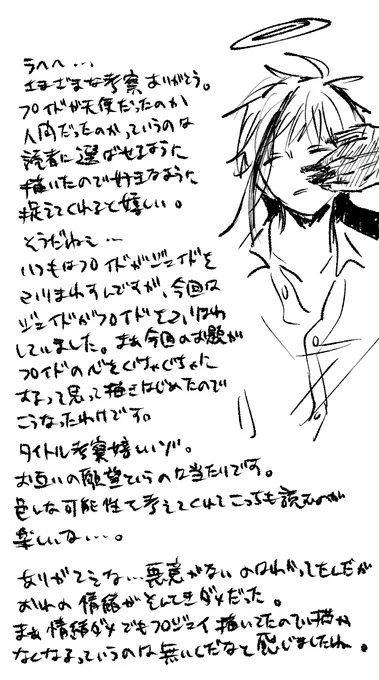 うへへ…
さまざまな考察ありがとう。
フロイドが天使だったのか
人間だったのかっていうのは
読者に選ばせるように
描いたので好きなように
捉えてくれると嬉しい。
そうだねぇ…
いつもはフロイドがジェイドを
ふりまわすんですが、今回は
ジェイドがフロイドをふりまわ
していました。まぁ今回のお題が
フロイドの心をぐちゃぐちゃに
するって思って描きはじめたので
こうなったわけです。
タイトル考察嬉しいゾ。
お互いの願望というのは当たりです。
色んな可能性で考えてくれてこっちも読むのが
楽しいな…。
ありがてぇな…悪意がないのはわかってたんだが
おれの情緒がそんときダメだった。
まぁ情緒ダメでもフロジェイ描いてたので描か
なくなるっていうのは無いんだなと感じましたね。